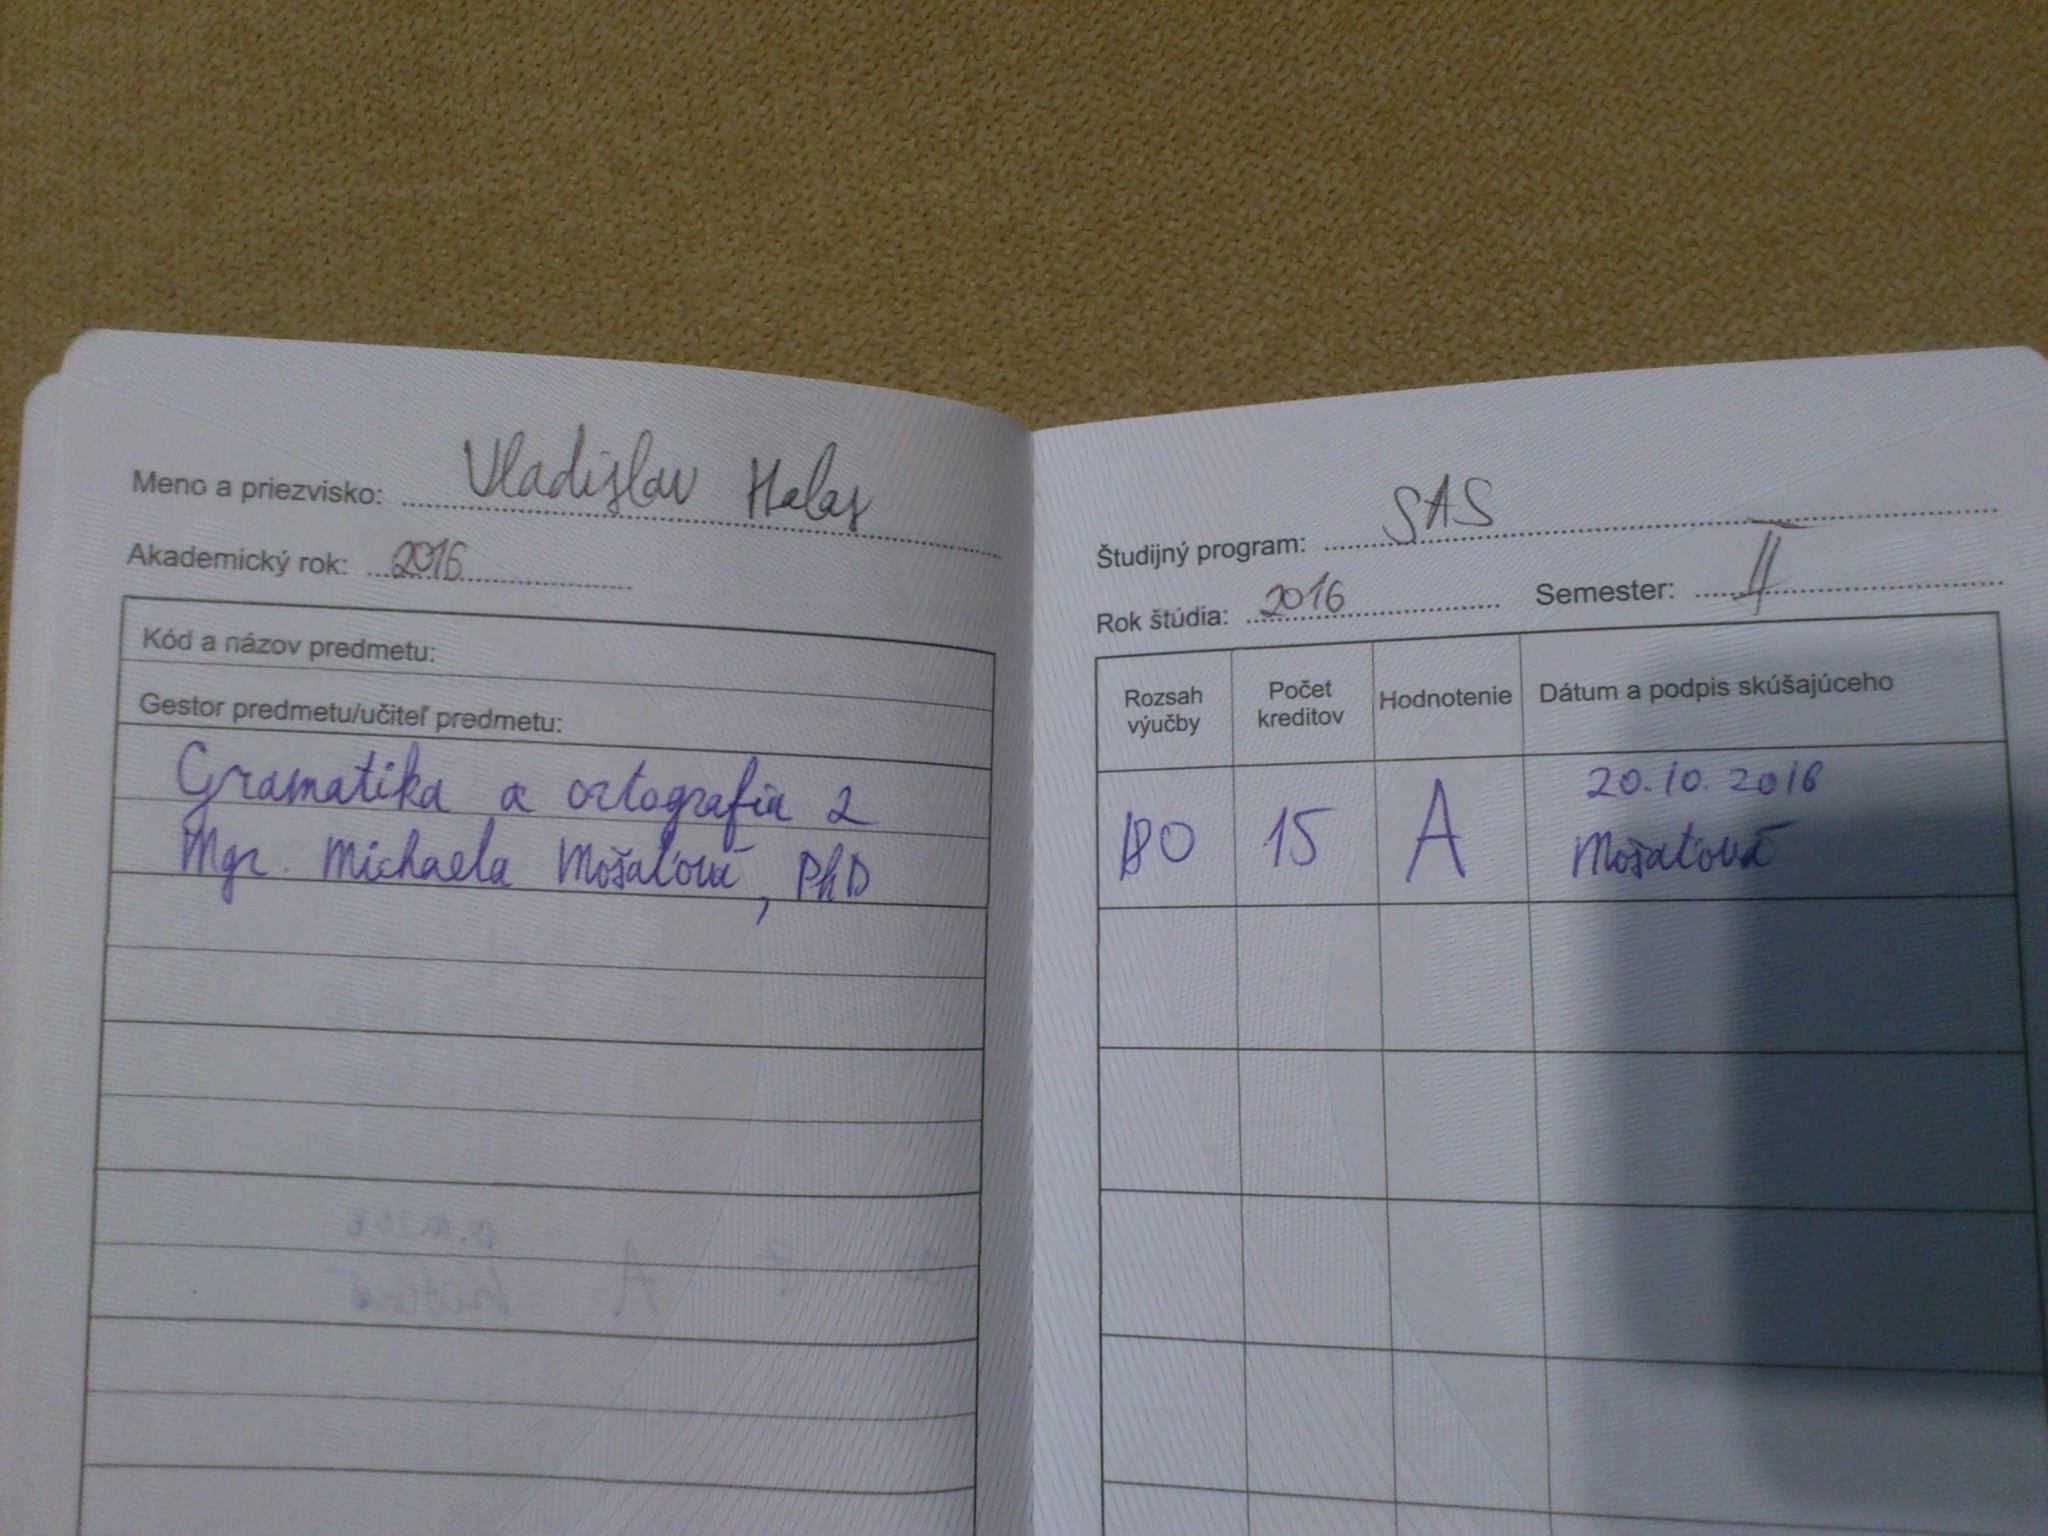 Meno a priezvisko: Vladislav Halas
Akademický rok: 2016
Kód a názov predmetu:
Gestor predmetu/učiteľ predmetu:
Gramatika a ortografia 2
Mgr. Michaela Mošaťová, PhD
Študijný program: SAS
Rok štúdia: 2016 Semester: II
Rozsah výučby
Počet kreditov
Hodnotenie
Dátum a podpis skúšajúceho
15
A
20.10.2016
Mošaťová